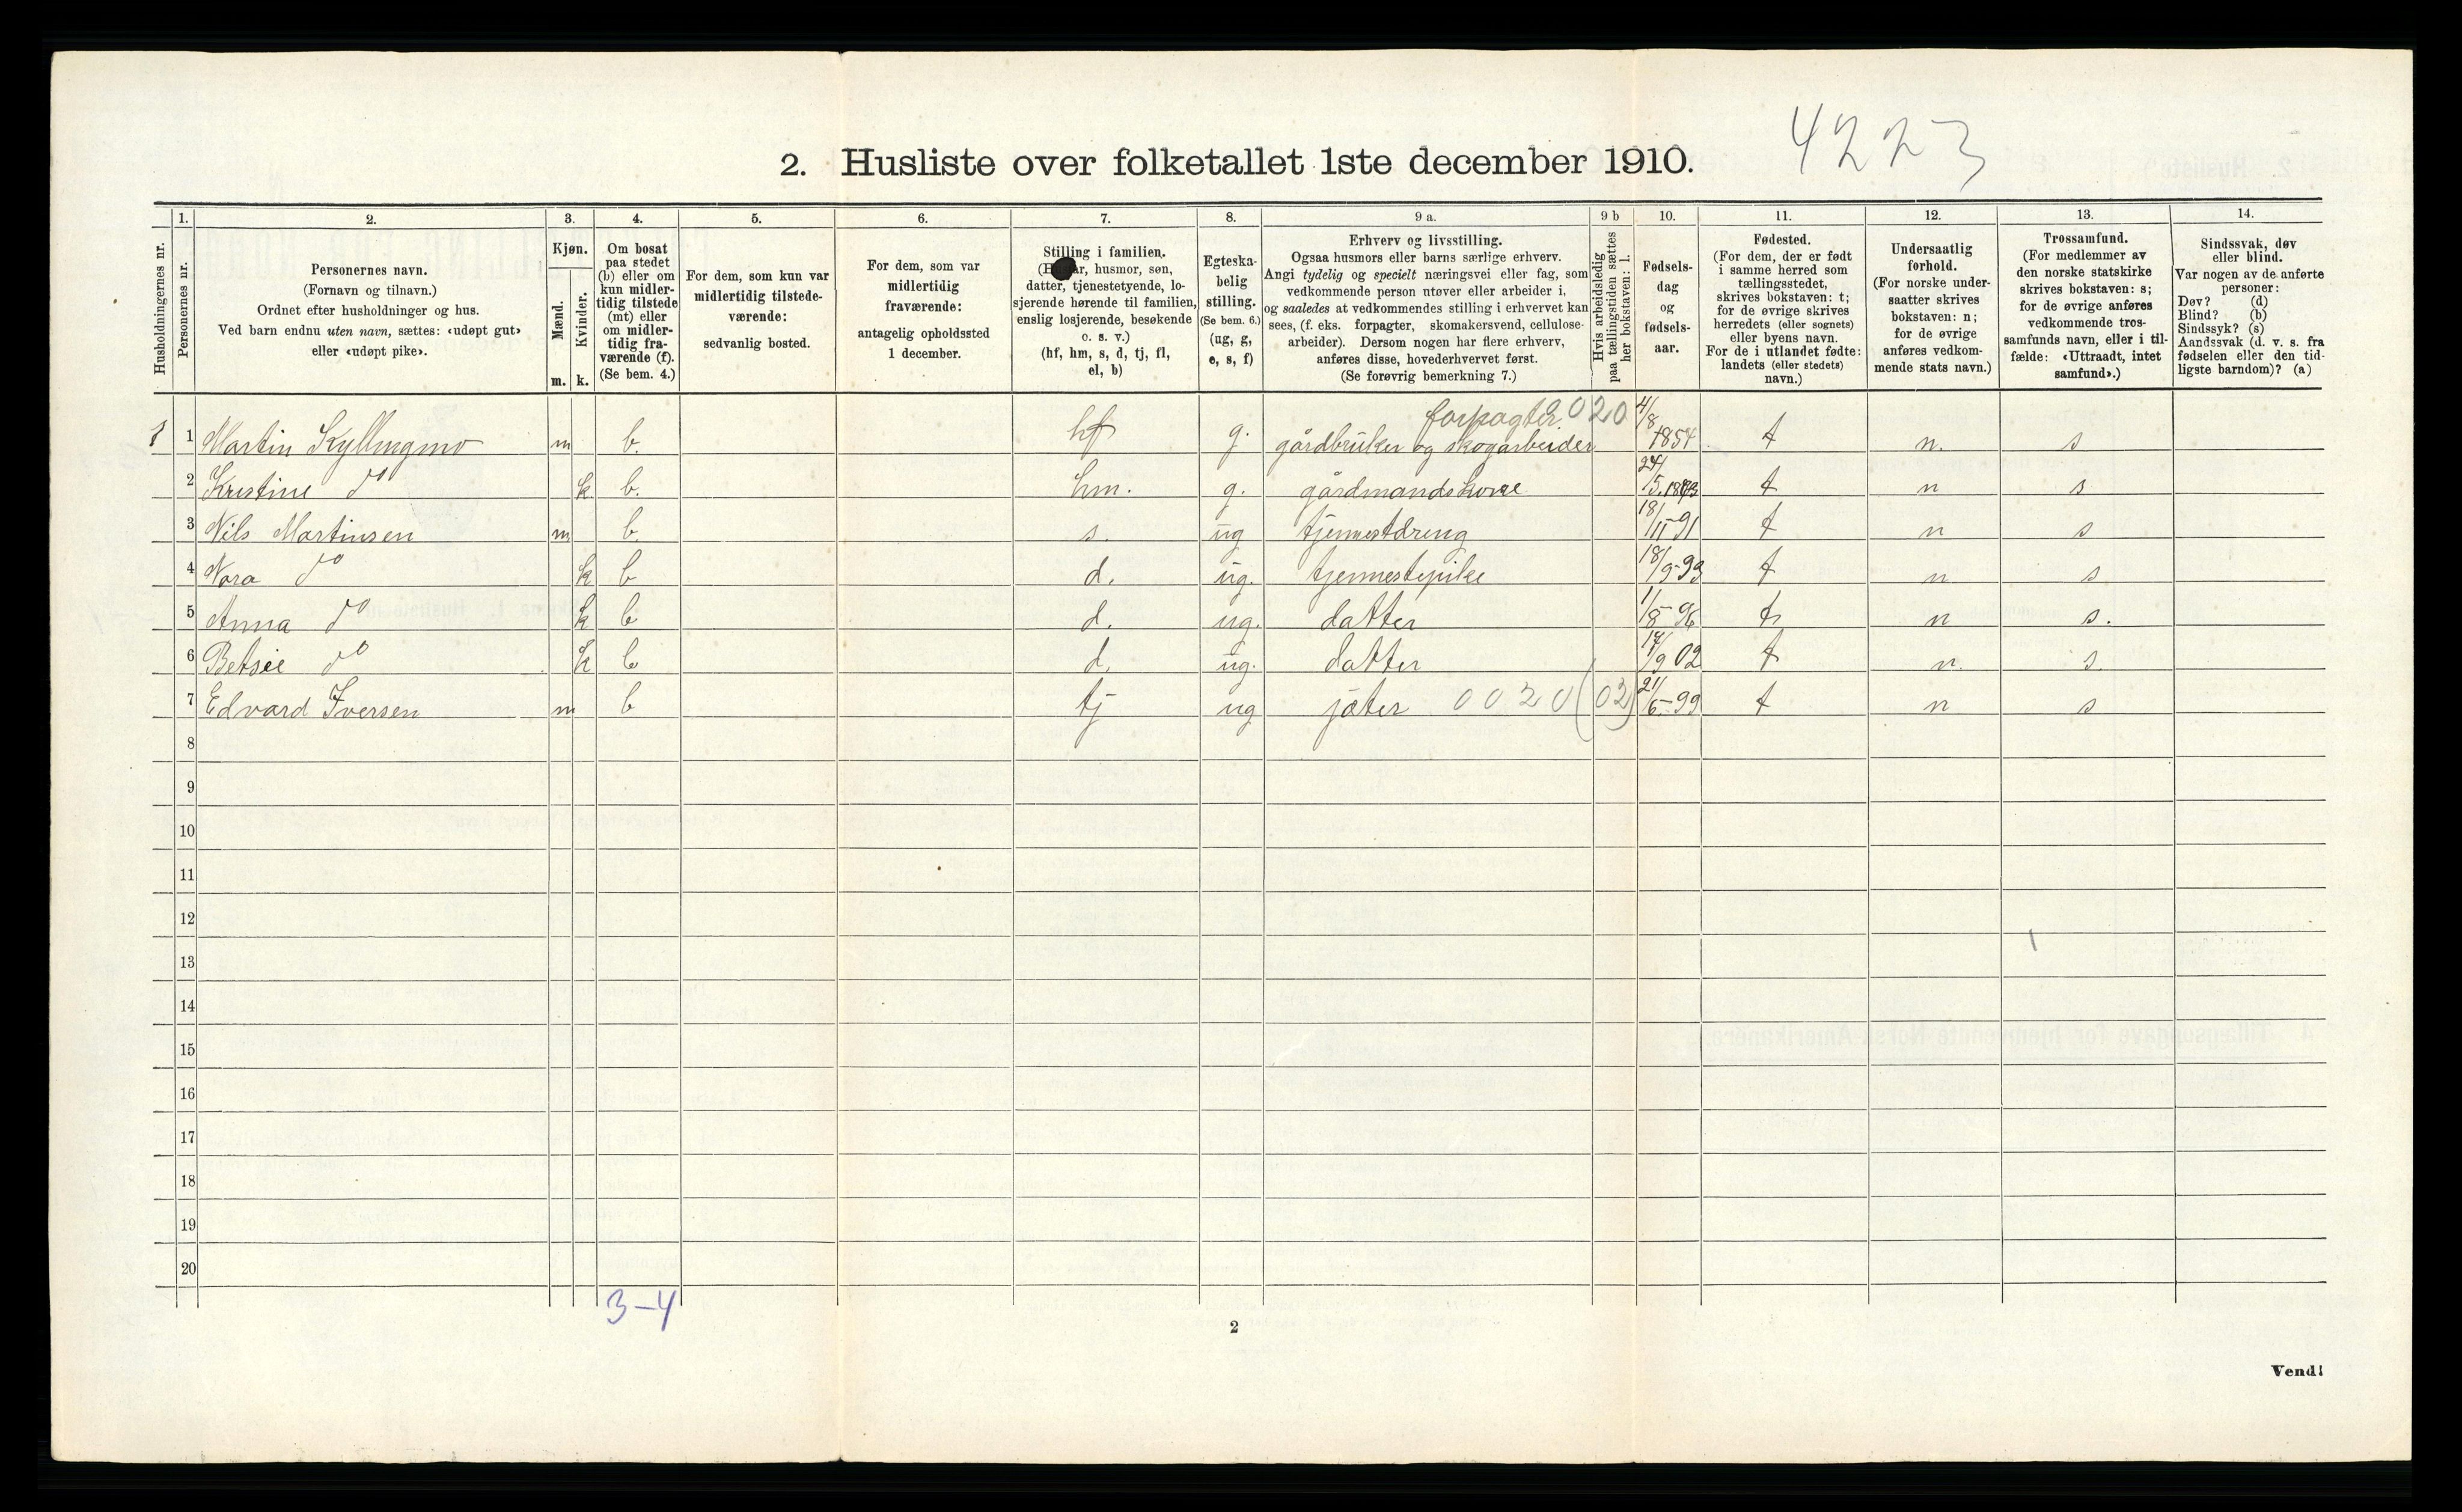 4223
2. Husliste over folketallet 1ste december 1910.
Husholdningernes nr.
1.
Personernes nr.
2.
Personernes navn.
(Fornavn og tilnavn.)
Ordnet efter husholdninger og hus.
Ved barn endnu uten navn, sættes: «udøpt gut»
eller «udøpt pike».
3.
Kjøn.
Mænd.
Kvinder.
m. k.
4.
Om bosat
paa stedet
(b) eller om
kun midler-
tidig tilstede
(mt) eller
om midler-
tidig fra-
værende (f).
(Se bem. 4.)
5.
For dem, som kun var
midlertidig tilstede-
værende:
sedvanlig bosted.
6.
For dem, som var
midlertidig
fraværende:
antagelig opholdssted
1 december.
7.
Stilling i familien.
husmor, søn,
datter, tjenestetyende, lo-
sjerende hørende til familien,
enslig losjerende, besøkende
o. s. v.)
(hf, hm, s, d, tj, fl,
el, b)
8.
Egteska-
belig
stilling.
(Se bem. 6.)
(ug, g,
e, s, f)
9 a.
Erhverv og livsstilling.
Ogsaa husmors eller barns særlige erhverv.
Angi tydelig og specielt næringsvei eller fag, som
vedkommende person utøver eller arbeider i,
og saaledes at vedkommendes stilling i erhvervet kan
sees, (f. eks. forpagter, skomakersvend, cellulose-
arbeider). Dersom nogen har flere erhverv,
anføres disse, hovederhvervet først.
(Se forøvrig bemerkning 7.)
9 b
Hvis arbeidsledig
paa tællingstiden sættes
her bokstaven: l.
10.
Fødsels-
dag
og
fødsels-
aar.
11.
Fødested.
(For dem, der er født
i samme herred som
tællingsstedet,
skrives bokstaven: t;
for de øvrige skrives
herredets (eller sognets)
eller byens navn.
For de i utlandet fødte:
landets (eller stedets)
navn.)
12.
Undersaatlig
forhold.
(For norske under-
saatter skrives
bokstaven: n;
for de øvrige
anføres vedkom-
mende stats navn.)
13.
Trossamfund.
(For medlemmer av
den norske statskirke
skrives bokstaven: s;
for de øvrige anføres
vedkommende tros-
samfunds navn, eller i til-
fælde: «Uttraadt, intet
samfund».)
14.
Sindssvak, døv
eller blind.
Var nogen av de anførte
personer:
Døv? (d)
Blind? (b)
Sindssyk? (s)
Aandssvak (d. v. s. fra
fødselen eller den tid-
ligste barndom)? (a)
forpagter 020
1 1 Martin Kyllingmo m b. hf g. gårdbruker og skogarbeider 4/8 1854 t n. s
2 Kristine do k b. hm. g. gårdmandskone 24/5. t n s
3 Nils Martinsen m b. s. ug tjenestdreng 18/11-91 t n s
4 Nora do k b d. ug. tjennestepike 18/9-93 t n s
5 Anna do k b d. ug. datter 1/8-96 t n s.
6 Betsie do k b d. ug. datter 14/9 02 t n. s.
7 Edvard Iversen m b tj ug jæter 0020 (02) 21/6-99 t n s
8
9
10
11
12
13
14
15
16
17
18
19
20
3-4
2
Vend!